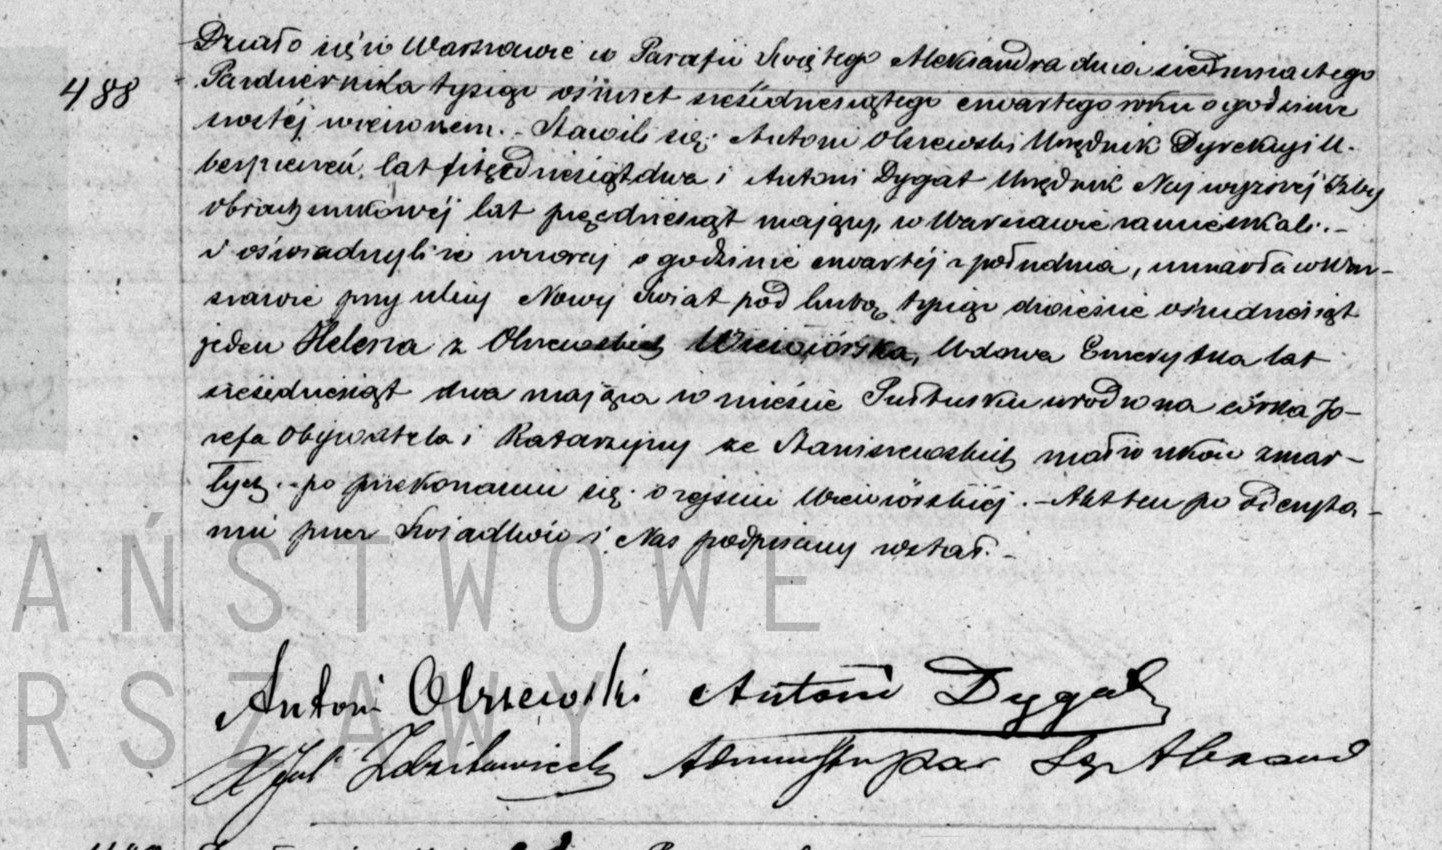 Działo się w Warszawie w Parafii Świętego Alexandra dnia siedmnastego
488
Października tysiąc ośmset sześćdziesiątego czwartego roku o godzinie
szostéj wieczorem. – Stawili się: Antoni Olszewski Urzędnik Dyrekcyi U-
bespieczeń, lat pięćdziesiąt dwa i Antoni Dygat Urzędnik Najwyższéj Izby
Obrachunkowéj lat pięćdziesiąt mający, w Warszawie zamieszkali. –
i oświadczyli że wczoraj o godzinie czwartéj z południa, umarła w War-
szawie przy ulicy Nowy Świat pod liczbą tysiąc dwieście ośmdziesiąt
jeden Helena z Olszewskich Wiewiórska, Wdowa Emerytka lat
sześćdziesiąt dwa mająca w mieście Pułtusku urodzona córka Jó-
zefa Obywatela i Katarzyny ze Staniszewskich małżonków zmar-
łych. – po przekonaniu się o zejściu Wiewiórskiéj. – Akt ten po odczyta-
niu przez Świadków i Nas podpisany został. –
AŃSTWOWE
Antoni Olszewski Antoni Dygat
RSZAWY
X Jul Administr par Św Alexand